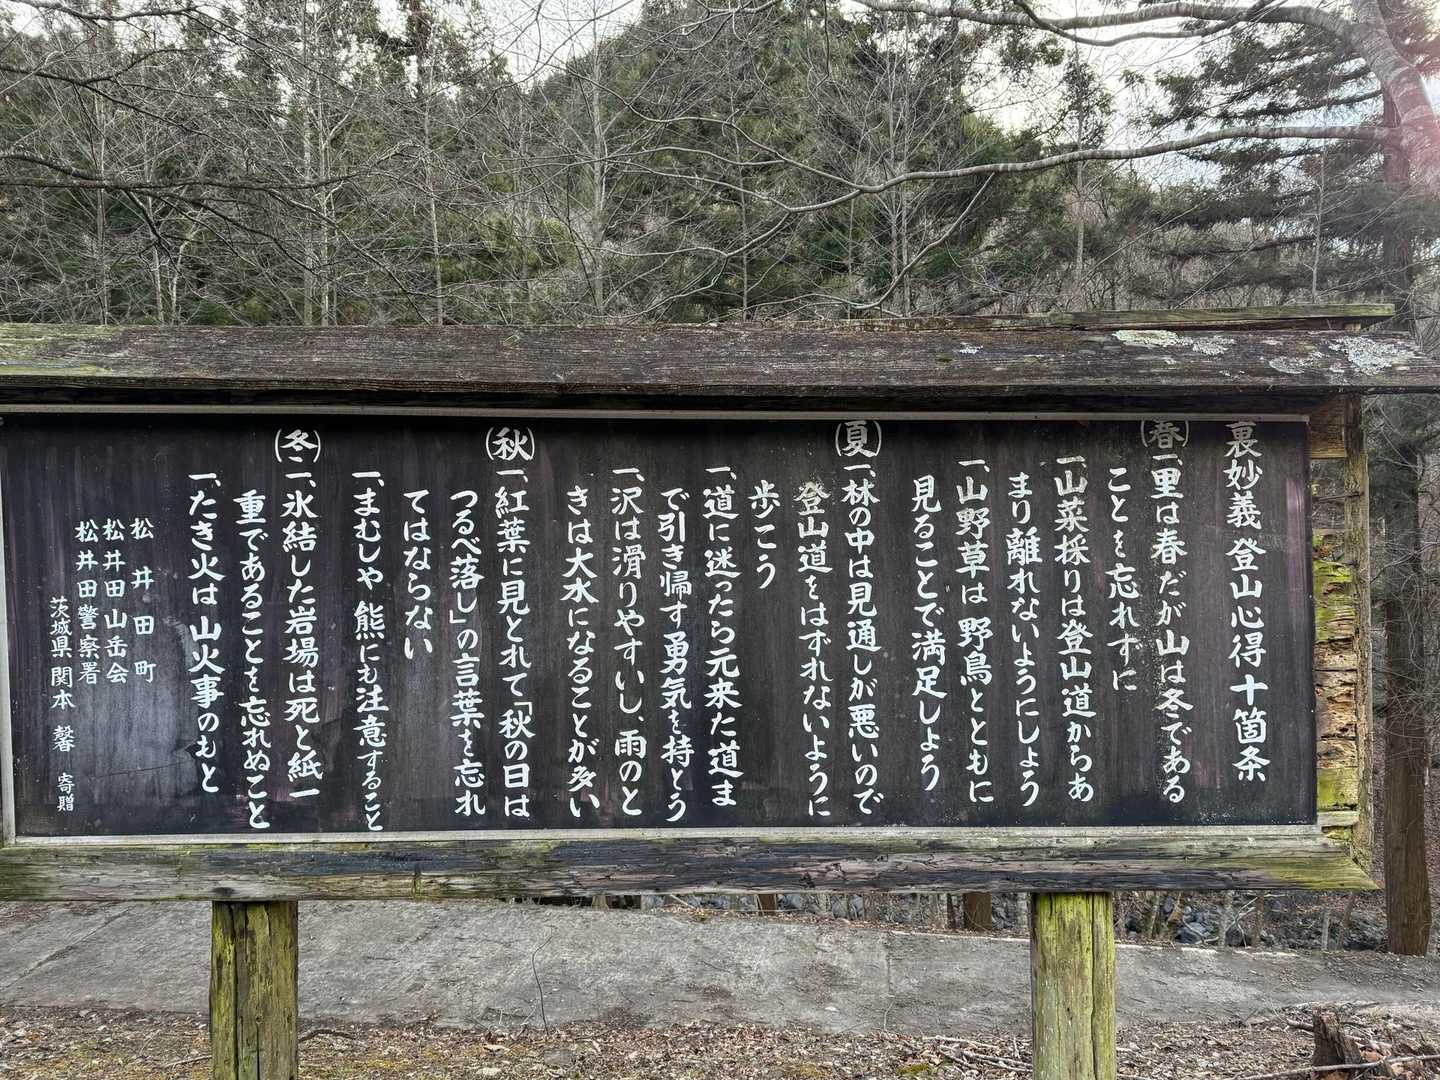 裏妙義登山心得十箇条
(春)一、里は春だが山は冬である
ことを忘れずに
一、山菜採りは登山道からあ
まり離れないようにしょう
一、山野草は野鳥とともに
見ることで満足しょう
(夏)一、林の中は見通しが悪いので
登山道をはずれないように
歩こう
一、道に迷ったら元来た道ま
で引き帰す勇気を持とう
一、沢は滑りやすいし、雨のと
きは大水になることが多い
(秋)一、紅葉に見とれて「秋の日は
つるべ落し」の言葉を忘れ
てはならない
一、まむしや熊にも注意すること
(冬)一、氷結した岩場は死と紙一
重であることを忘れぬこと
一、たき火は山火事のもと
松井田町
松井田山岳会
松井田警察署
茨城県 関本 馨 寄贈